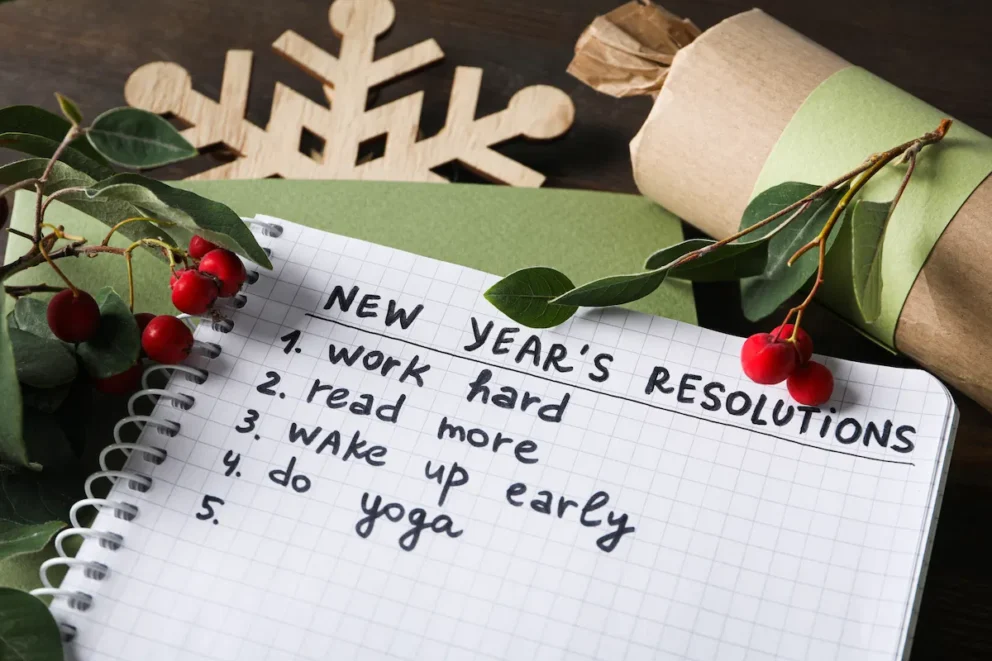 NEW YEAR'S RESOLUTIONS
1. work hard
2. read more
3. WAKe up early
4. do yoga
5.